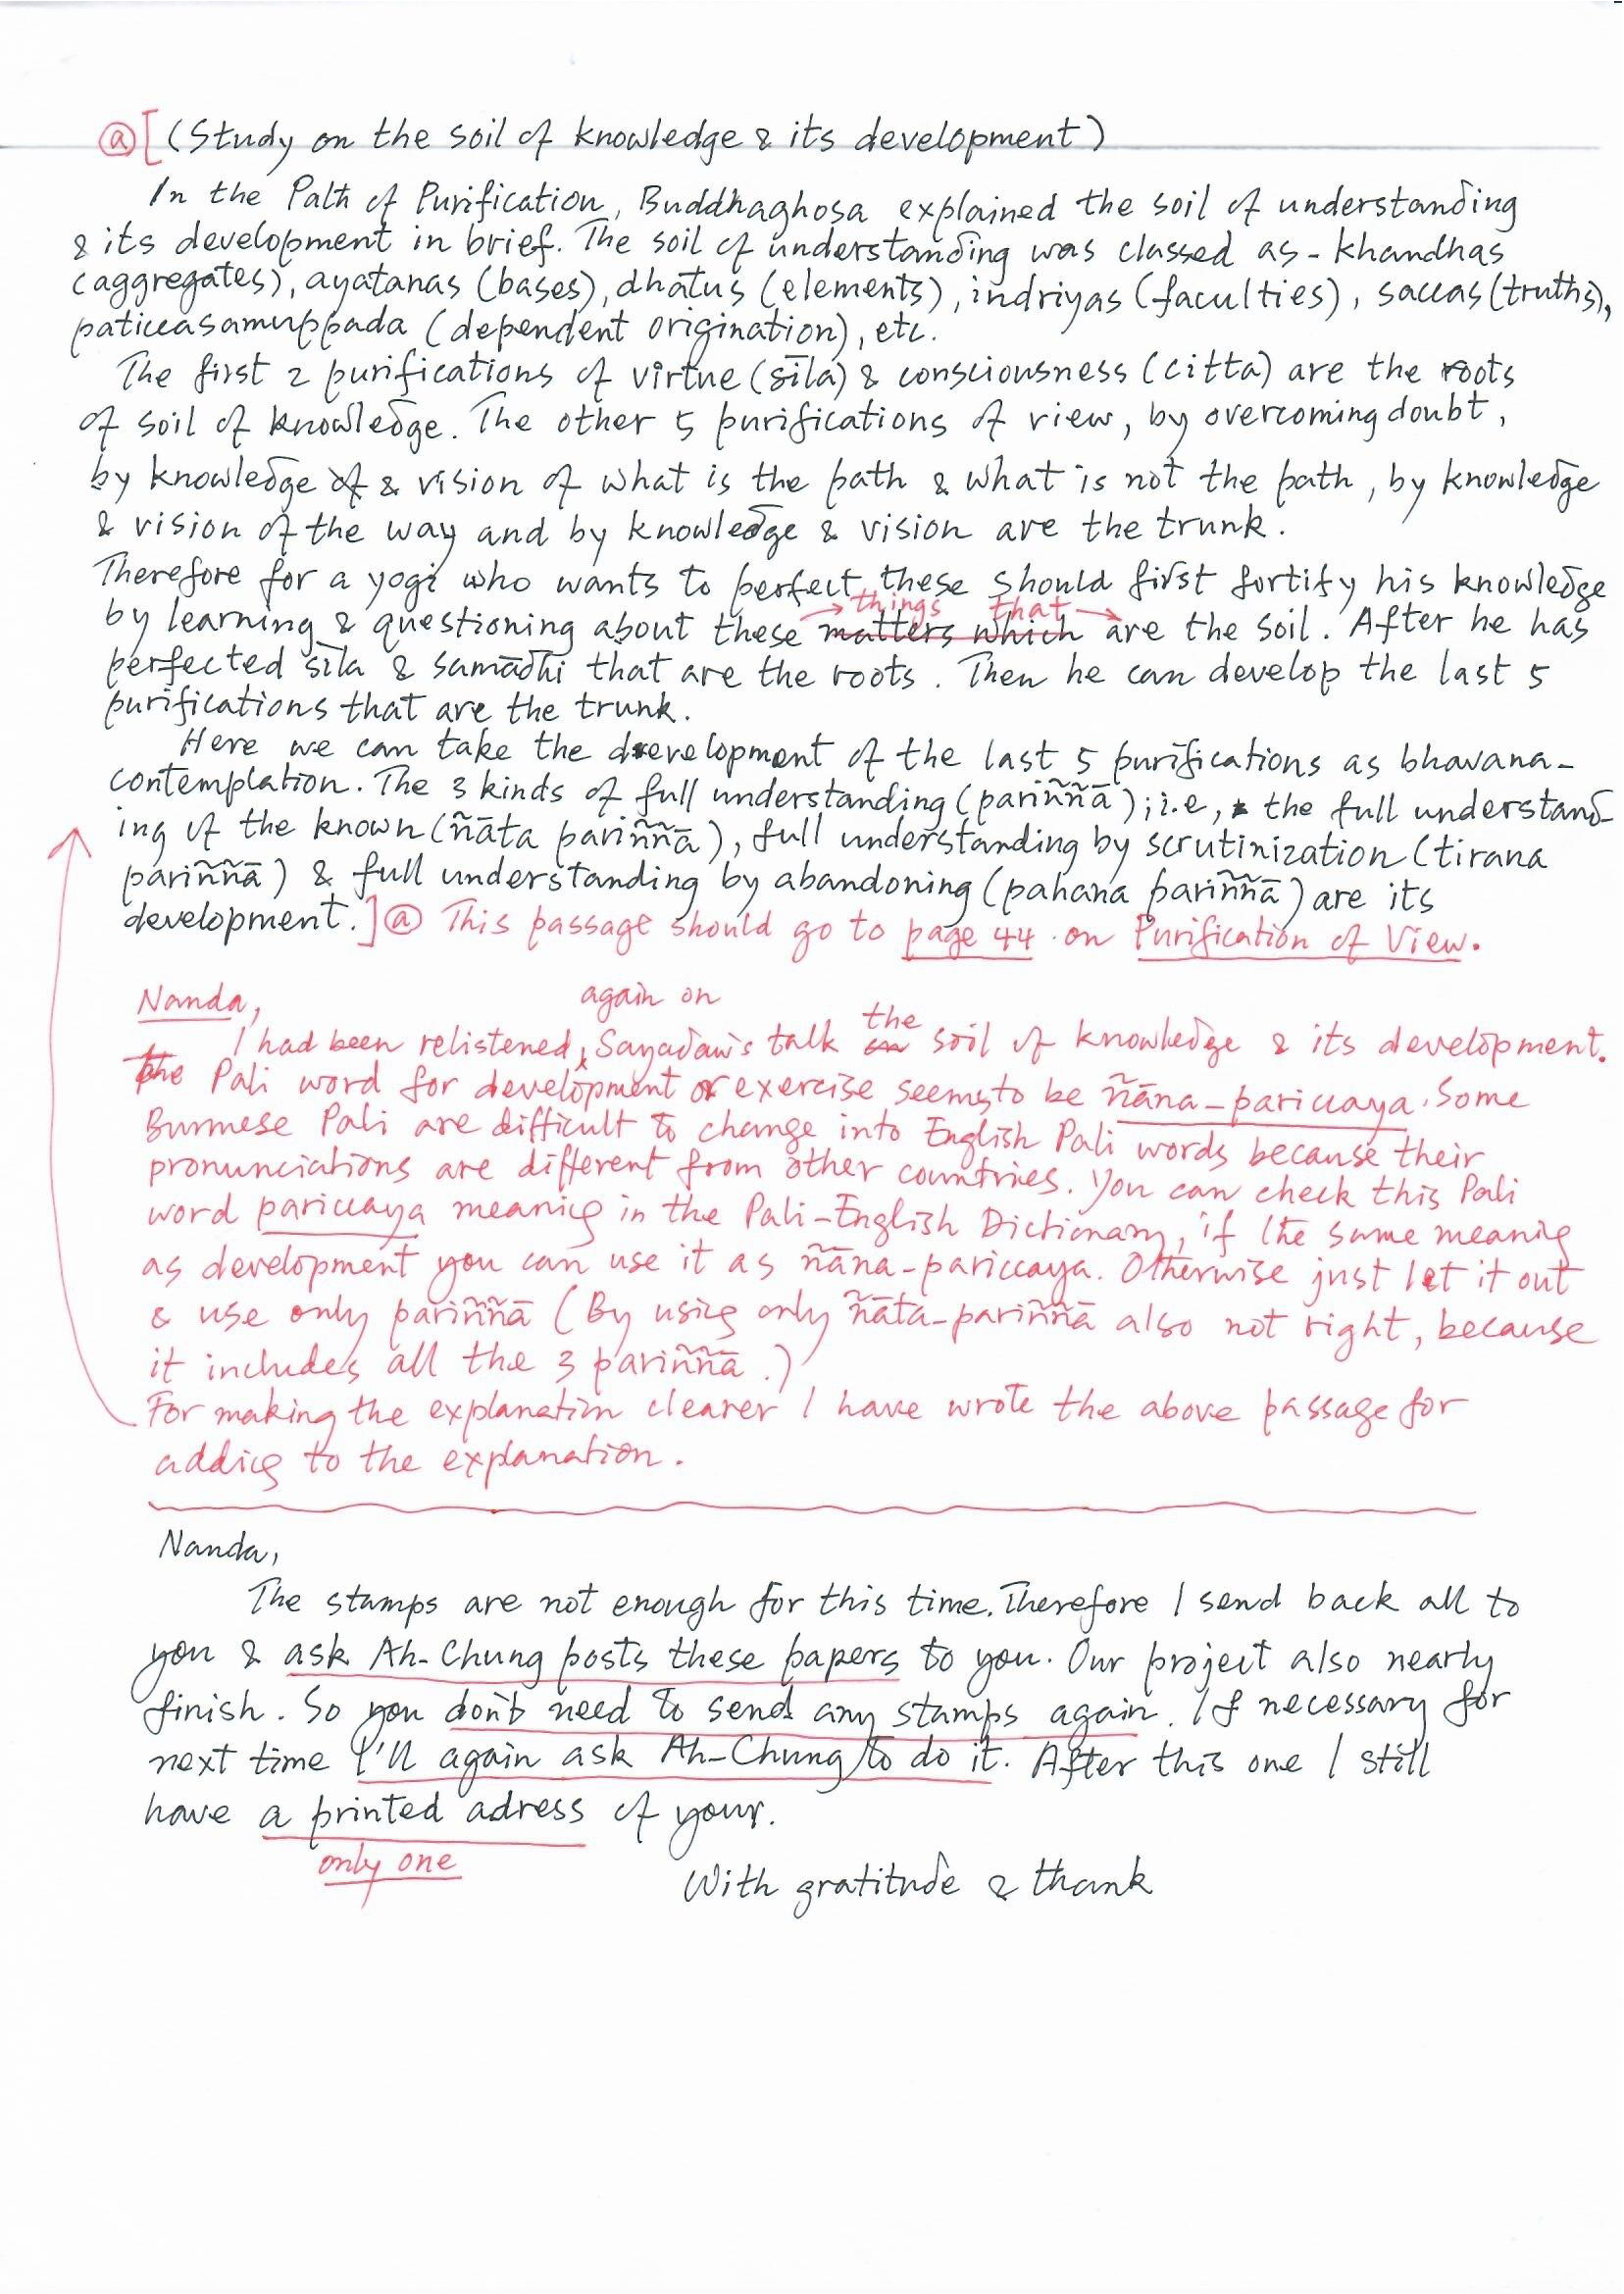 @[(Study on the soil of knowledge & its development)
In the Path of Purification, Buddhaghosa explained the soil of understanding
& its development in brief. The soil of understanding was classed as - khandhas
(aggregates), ayatanas (bases), dhātus (elements), indriyas (faculties), saccas (truths),
paticcasamuppada (dependent origination), etc.
The first 2 purifications of virtue (sīla) & consciousness (citta) are the roots
of soil of knowledge. The other 5 purifications of view, by overcoming doubt,
by knowledge of & vision of what is the path & what is not the path, by knowledge
& vision of the way and by knowledge & vision are the trunk.
Therefore for a yogi who wants to perfect these should first fortify his knowledge
things that
by learning & questioning about these matters which are the soil. After he has
perfected sīla & samādhi that are the roots. Then he can develop the last 5
purifications that are the trunk.
Here we can take the development of the last 5 purifications as bhavana-
contemplation. The 3 kinds of full understanding (pariññā); i.e, the full understand-
ing of the known (ñāta pariññā), full understanding by scrutinization (tirana
pariññā) & full understanding by abandoning (pahana pariññā) are its
development.]@ This passage should go to page 44 on Purification of View.
Nanda,
again on
I had been relistened, Sayadaw's talk on the soil of knowledge & its development.
the Pali word for development or exercise seems to be ñāna-pariccaya. Some
Burmese Pali are difficult to change into English Pali words because their
pronunciations are different from other countries. You can check this Pali
word pariccaya meaning in the Pali-English Dictionary, if the same meaning
as development you can use it as ñāna-pariccaya. Otherwise just let it out
& use only pariññā (By using only ñāta-pariññā also not right, because
it includes all the 3 pariññā.)
For making the explanation clearer I have wrote the above passage for
adding to the explanation.
Nanda,
The stamps are not enough for this time. Therefore I send back all to
you & ask Ah-Chung posts these papers to you. Our project also nearly
finish. So you don't need to send any stamps again. If necessary for
next time I'll again ask Ah-Chung to do it. After this one I still
have a printed adress of your.
only one
With gratitude & thank